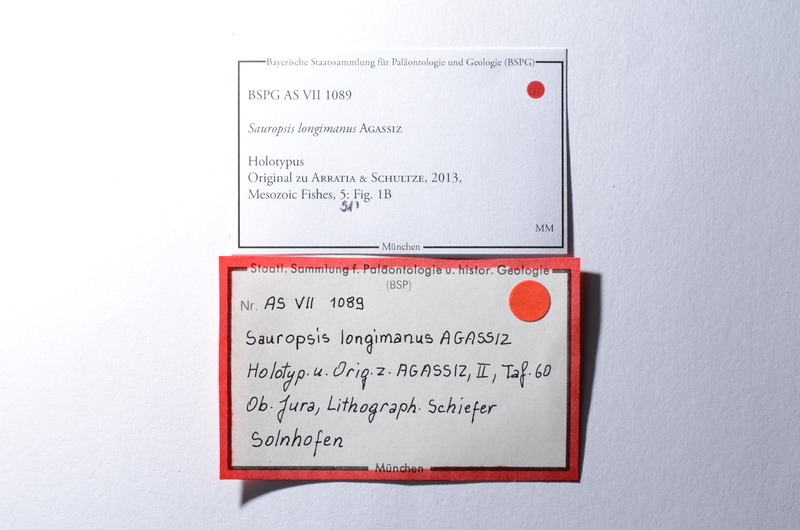 Bayerische Staatssammlung für Paläontologie und Geologie (BSPG)
BSPG AS VII 1089
Sauropsis longimanus AGASSIZ
Holotypus
Original zu ARRATIA & SCHULTZE, 2013,
Mesozoic Fishes, 5: Fig. 1B
MM
München
Staatl. Sammlung f. Paläontologie u. histor. Geologie
(BSP)
Nr. AS VII 1089
Sauropsis longimanus AGASSIZ
Holotyp. u. Orig. z. AGASSIZ, II, Taf. 60
Ob. Jura, Lithograph. Schiefer
Solnhofen
München